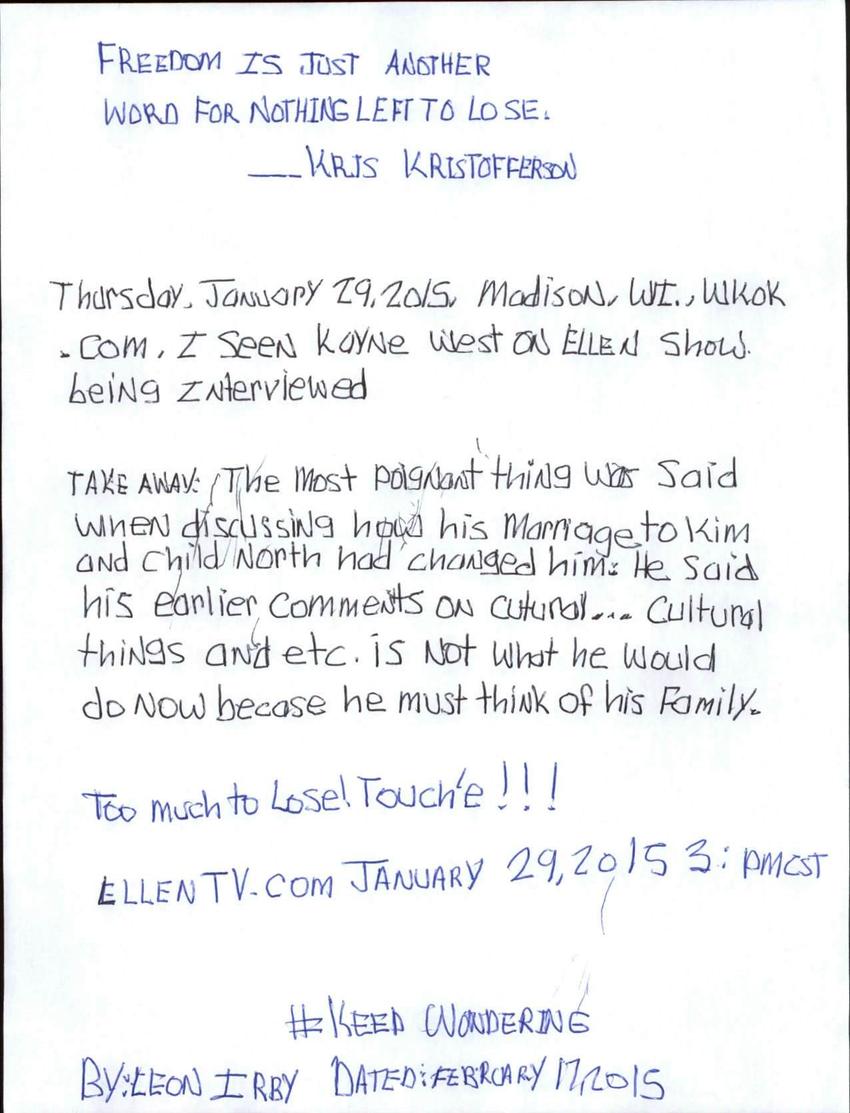 FREEDOM IS JUST ANOTHER
WORD FOR NOTHING LEFT TO LOSE.
___KRIS KRISTOFFERSON
Thursday, January 29, 2015, Madison, WI., WKOK
.com, I seen Kayne West on ELLEN Show.
being Interviewed
TAKE AWAY: The most poignant thing was said
when discussing how his Marriage to Kim
and child North had changed him: He said
his earlier comments on cutural... cultural
things and etc. is Not what he would
do Now becase he must think of his Family.
Too much to Lose! Touch'e!!!
ELLENTV.COM JANUARY 29, 2015 3: PMCST
#KEEP WONDERING
BY: LEON IRBY DATED: FEBRUARY 17, 2015